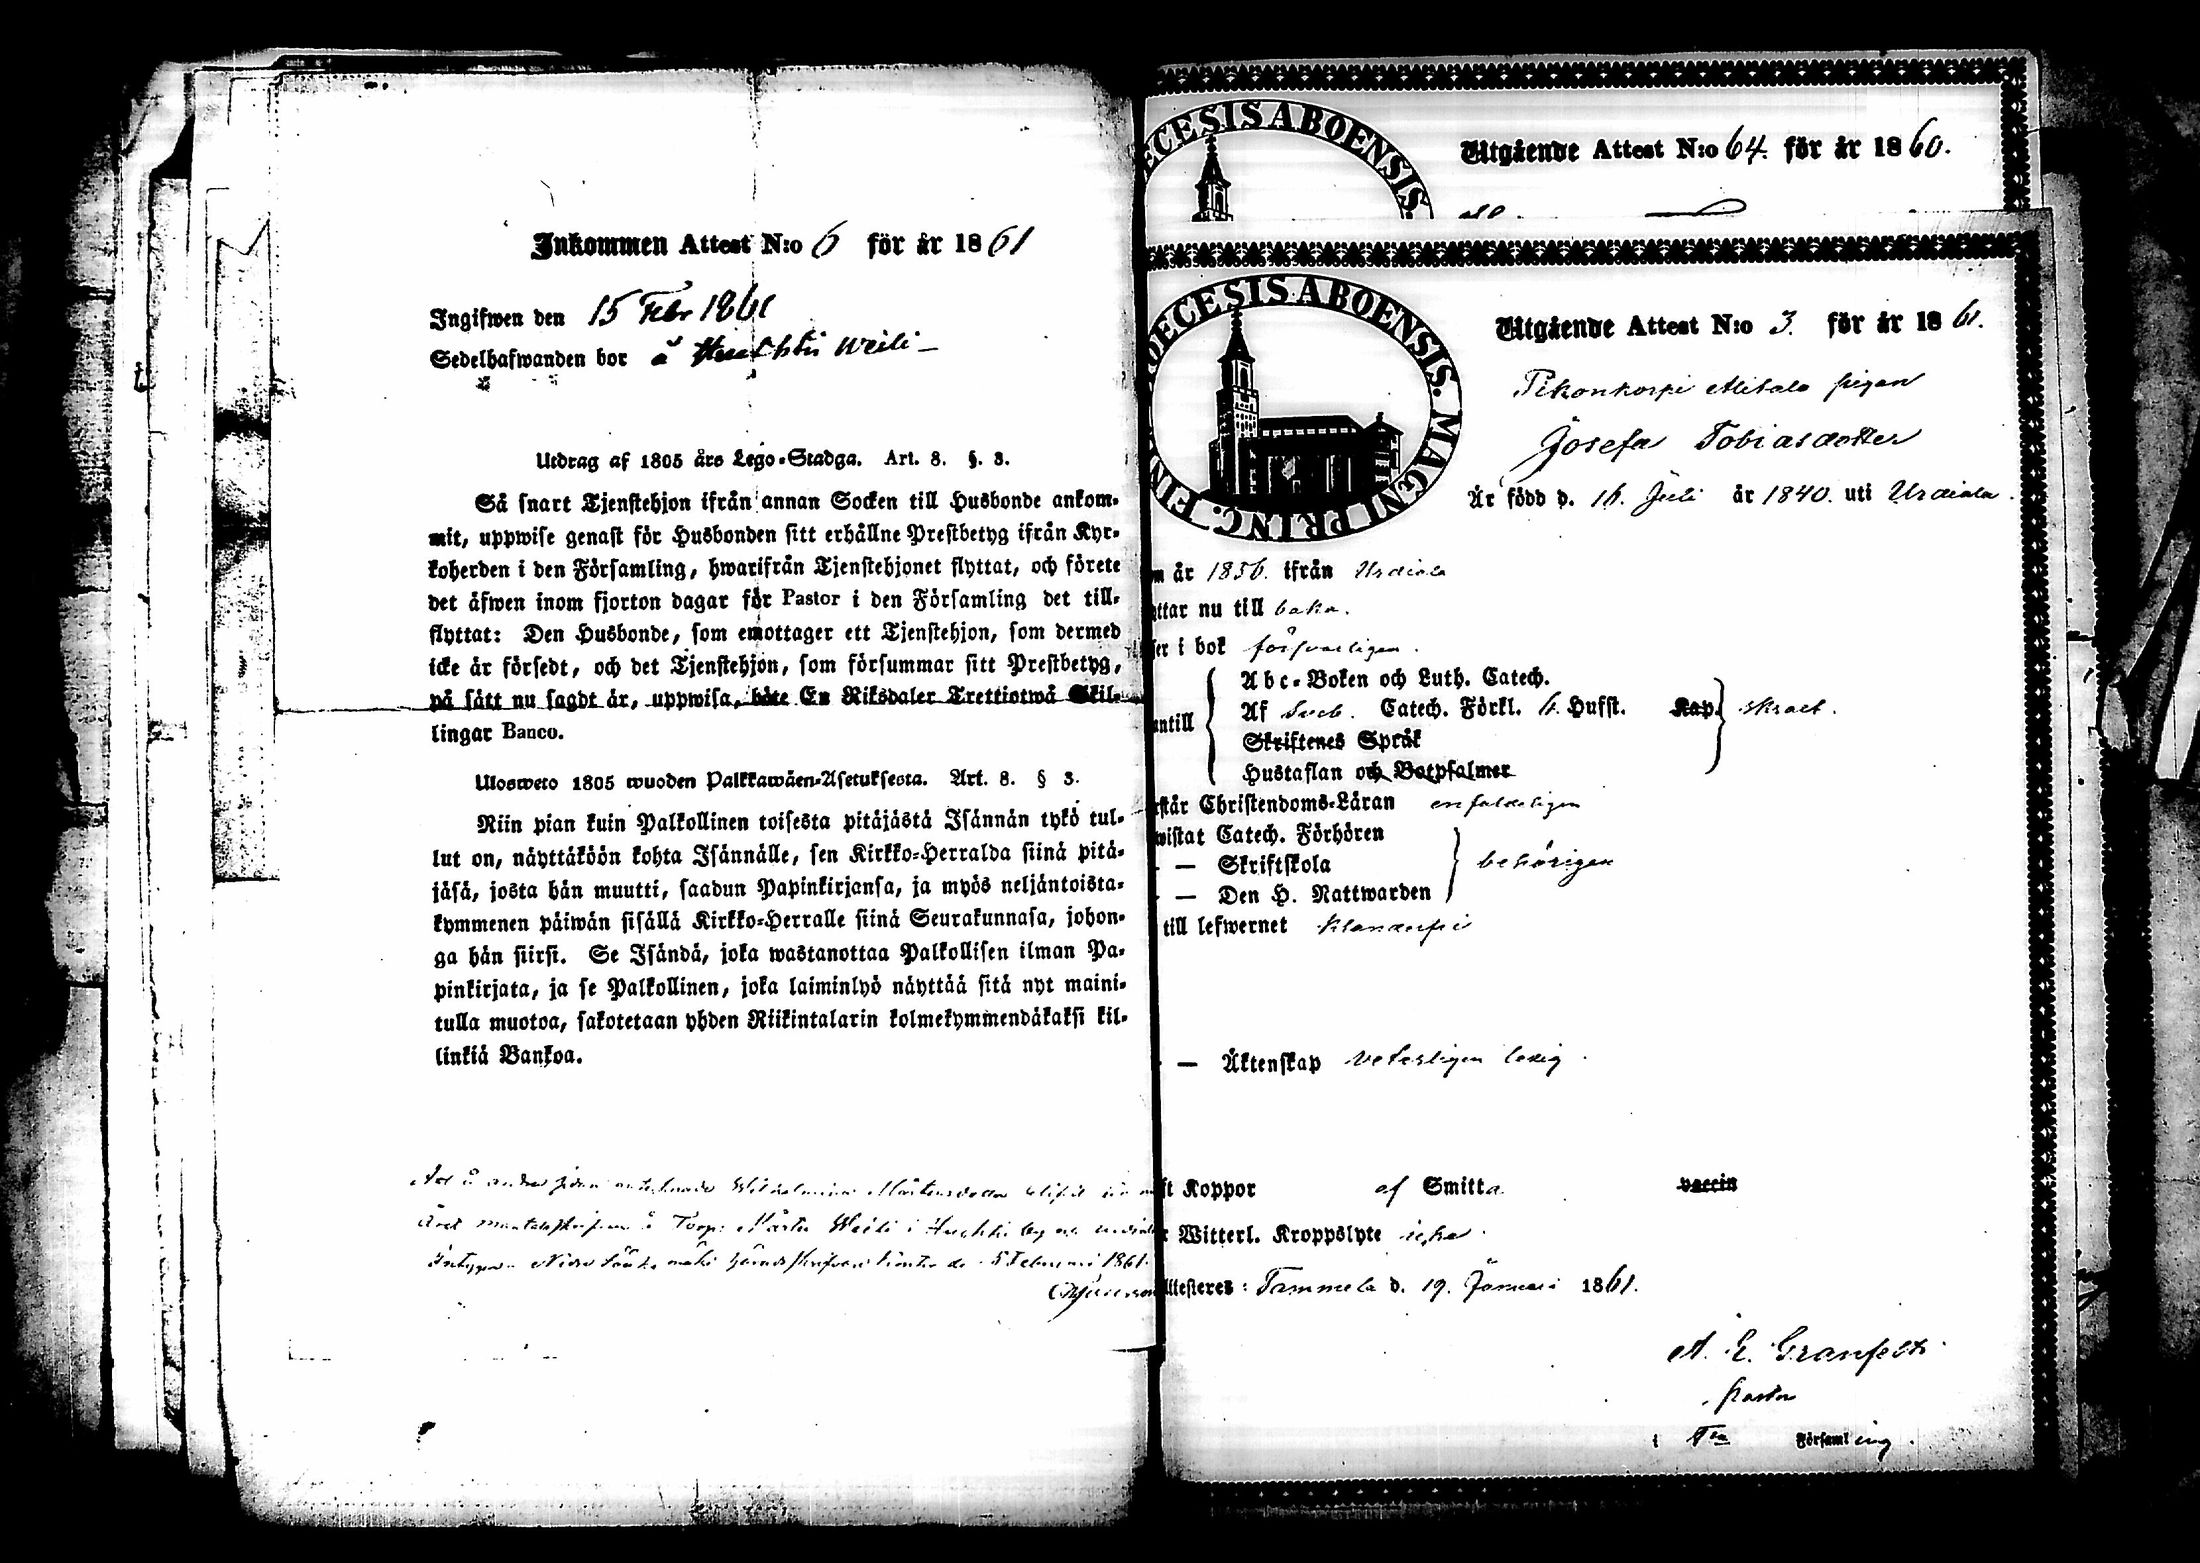 Inkommen Attest N:o 6 för år 1861
Ingifwen den 15 Febr 1861
Sedelhafwanden bor å Huhtti Weili
Utdrag af 1805 års Lego-Stadga. Art. 8. §. 3.
Så snart Tjenstehjon ifrån annan Socken till Husbonde ankom-
mit, uppwise genast för Husbonden sitt erhållne Prestbetyg ifrån Kyr-
koherden i den Församling, hwarifrån Tjenstehjonet flyttat, och förete
det äfwen inom fjorton dagar för Pastor i den Församling det till-
flyttat: Den Husbonde, som emottager ett Tjenstehjon, som dermed
icke är försedt, och det Tjenstehjon, som försummar sitt Prestbetyg,
på sätt nu sagdt är, uppwisa, böte En Riksdaler Trettiotwå Skil-
lingar Banco.
Ulosweto 1805 wuoden Palkkawäen-Asetuksesta. Art. 8. § 3.
Niin pian kuin Palkollinen toisesta pitäjästä Isännän tykö tul-
lut on, näyttäköön kohta Isännälle, sen Kirkko-Herralda siinä pitä-
jäsä, josta hän muutti, saadun Papinkirjansa, ja myös neljäntoista-
kymmenen päiwän sisällä Kirkko-Herralle siinä Seurakunnasa, johon-
ga hän siirsi. Se Isändä, joka wastanottaa Palkollisen ilman Pa-
pinkirjata, ja se Palkollinen, joka laiminlyö näyttää sitä nyt maini-
tulla muotoa, sakotetaan yhden Riikintalarin kolmekymmendäkaksi kil-
linkiä Bankoa.
Att å andra sidan antecknade Wilhelmina Mårtensdotter blifvit
året mantalsskrifven å Torp: Mårten Weili i Huhtti by
Intygas häradsskrifvare kontor de 5 Februari 1861.
ECESIS ABOENSIS.
Utgående Attest N:o 64. för år 1860.
DECESIS ABOENSIS. MAGNI PRINC. FIN
Utgående Attest N:o 3. för år 1861.
Pikonkorpi Mitala pigan
Josefa Tobiasdotter
Är född d. 16. Juli år 1840. uti Urdiala.
m år 1856. ifrån Urdiala
yttar nu till baka.
ser i bok försvarligen.
antill
Abc-Boken och Luth. Catech.
Af Sveb. Catech. Förkl. 6. Hufst. Kap. skralt.
Skriftenes Språk
Hustaflan och Botpsalmer
rstår Christendoms-Läran enfaldeligen
wistat Catech. Förhören
— Skriftskola behörigen
— Den H. Nattwarden
till lefwernet klanderfri
— Äktenskap veterligen ledig.
ft Koppor af Smitta vaccin
r Witterl. Kroppslyte icke.
Attesteres: Tammela d. 19. Januari 1861.
A. E. Granfelt
Pastor
i Församling.